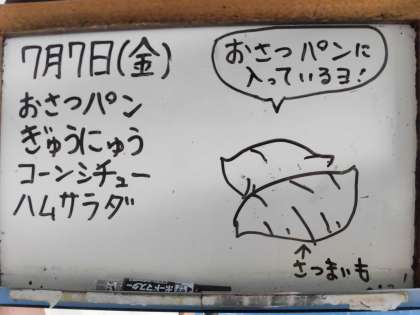 7月7日(金)
おさつパン
ぎゅうにゅう
コーンシチュー
ハムサラダ
おさつパンに
入っているヨ!
↑
さつまいも